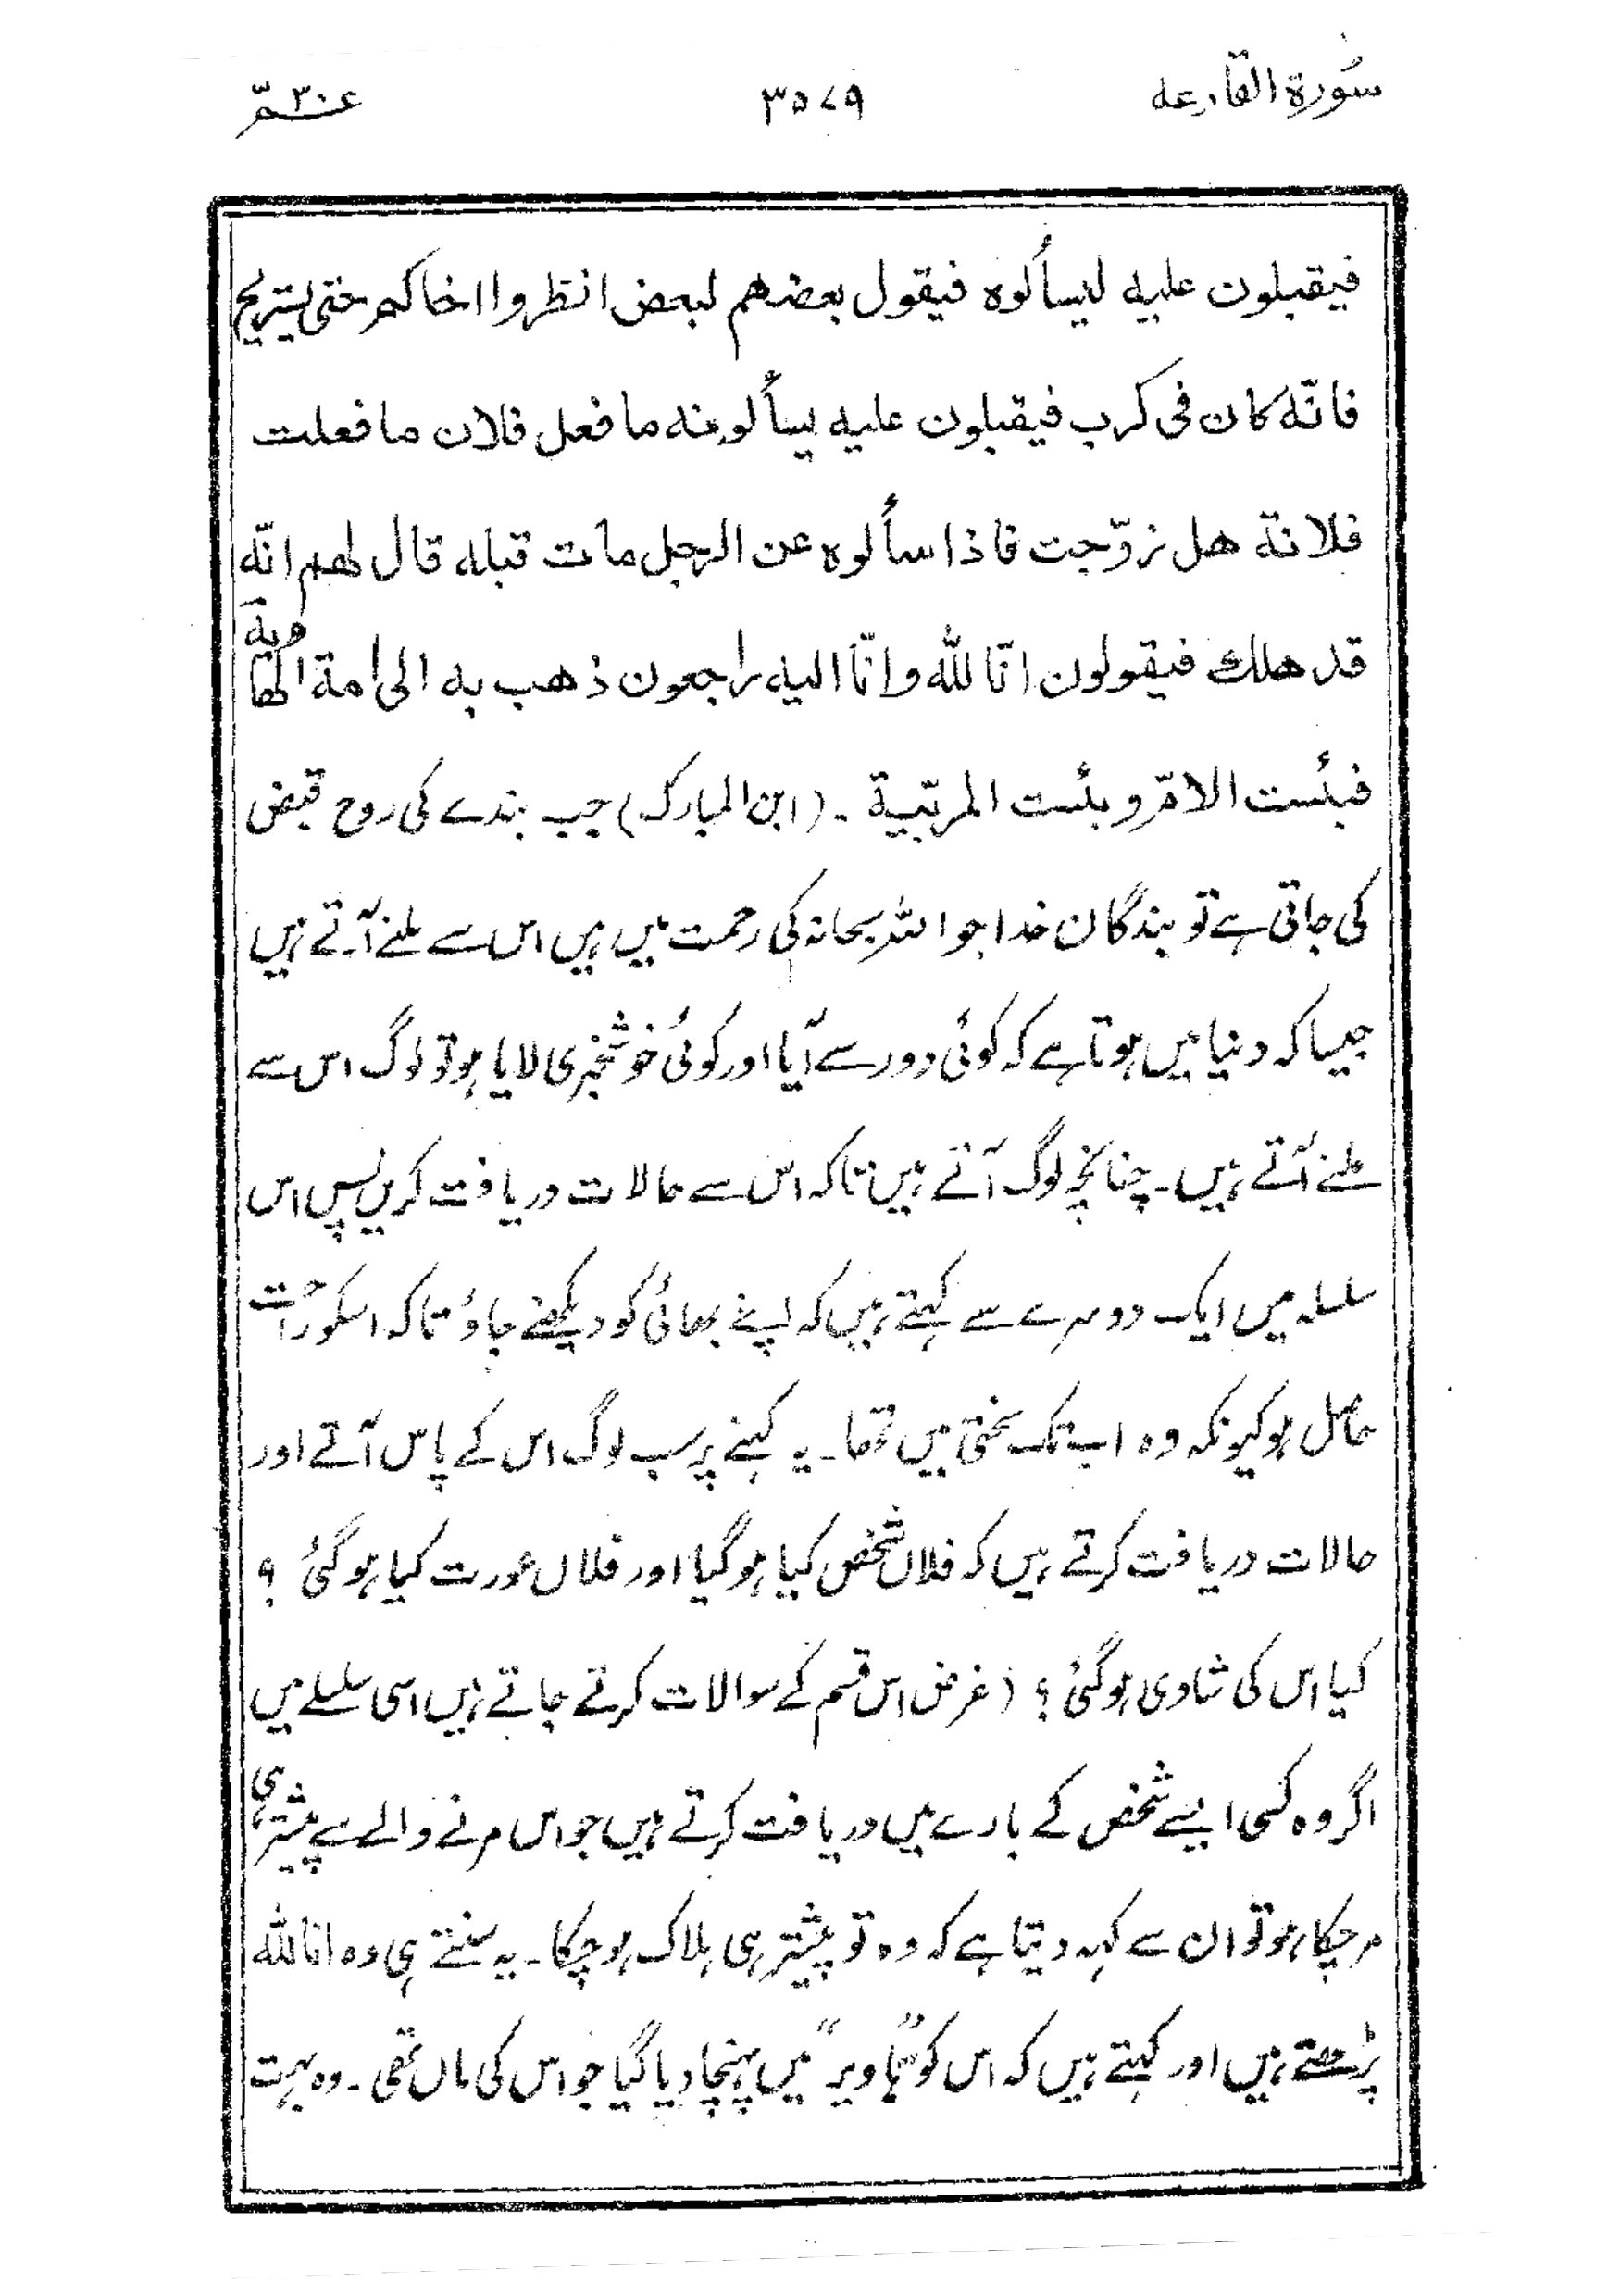 سُورۃ القارعہ ۳۵۷۹ عمّ ۳۰
فیقبلون علیه لیسألوه فیقول بعضهم لبعض انظروا اخاکم حتی یستریح
فانّه کان فی کرب فیقبلون علیه یسألونه ما فعل فلان ما فعلت
فلانة هل تزوّجت فاذا سألوه عن الرجل مات قبله قال لهم انّه
قد هلك فیقولون انّا للّٰه وانّا الیه راجعون ذهب به الی امة الهاویة
فبئست الامّ وبئست المربّیة ۔ (ابن المبارک) جب بندے کی روح قبض
کی جاتی ہے تو بندگان خدا جو اللہ سبحانہ کی رحمت میں ہیں اس سے ملنے آتے ہیں
جیسا کہ دنیا میں ہوتا ہے کہ کوئی دور سے آیا اور کوئی خوشخبری لایا ہو تو لوگ اس سے
ملنے آتے ہیں۔ چنانچہ لوگ آتے ہیں تاکہ اس سے حالات دریافت کریں پس اس
سلسلہ میں ایک دوسرے سے کہتے ہیں کہ اپنے بھائی کو دیکھنے جاؤ تاکہ اسکو راحت
حاصل ہو کیونکہ وہ اب تک سختی میں تھا۔ یہ کہنے پر سب لوگ اس کے پاس آتے اور
حالات دریافت کرتے ہیں کہ فلاں شخص کیا ہو گیا اور فلاں عورت کیا ہو گئی ؟
کیا اس کی شادی ہو گئی ؟ (غرض اس قسم کے سوالات کرتے جاتے ہیں اسی سلسلے میں
اگر وہ کسی ایسے شخص کے بارے میں دریافت کرتے ہیں جو اس مرنے والے سے پیشتر ہی
مر چکا ہو تو ان سے کہہ دیتا ہے کہ وہ تو پیشتر ہی ہلاک ہو چکا۔ یہ سنتے ہی وہ انا للہ
پڑھتے ہیں اور کہتے ہیں کہ اس کو "ہاویہ" میں پہنچا دیا گیا جو اس کی ماں تھی ۔ وہ بہت